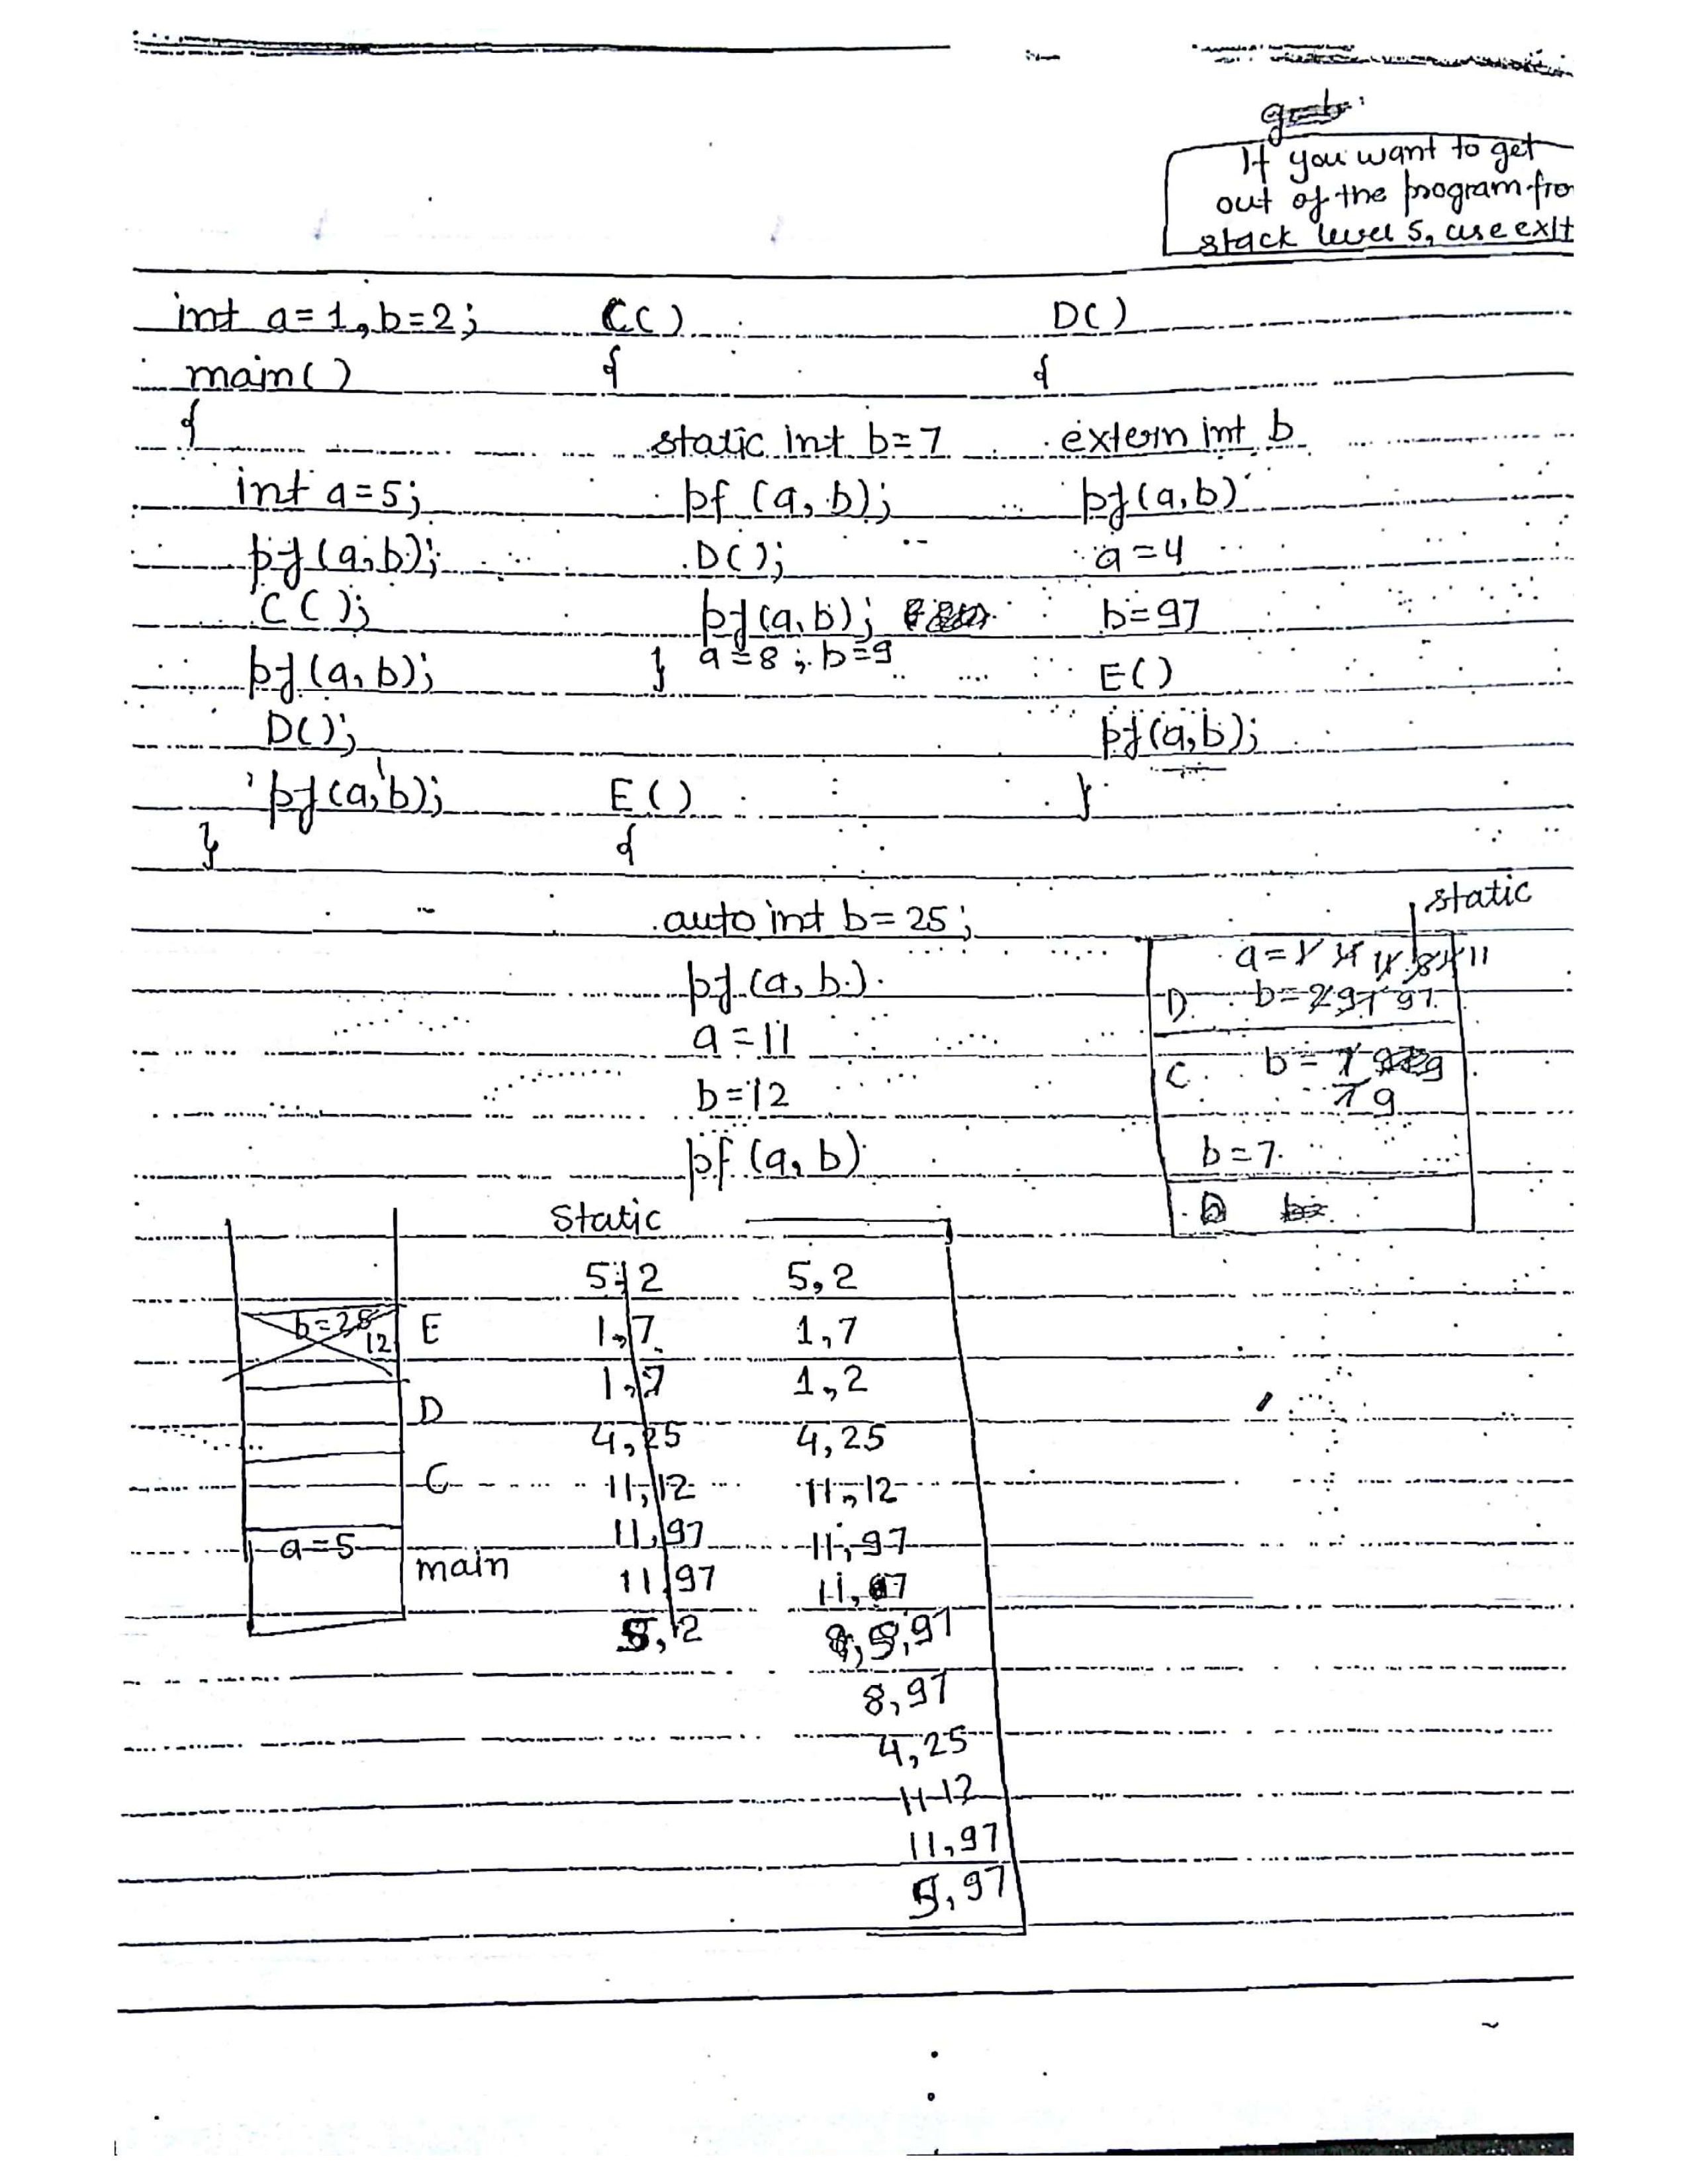 If you want to get
out of the program fro
stack level 5, use exit
int a=1, b=2;
main()
{
int a=5;
pf(a,b);
C();
pf(a,b);
D();
pf(a,b);
}
C()
{
static int b=7
pf(a,b);
D();
pf(a,b);
a=8; b=9
}
D()
{
extern int b
pf(a,b)
a=4
b=97
E()
pf(a,b);
}
E()
{
auto int b=25;
pf(a,b)
a=11
b=12
pf(a,b)
static
a=1 4 11 8 4 11
D b=2 97 97
C b=7 9
7 9
b=7
b=25
12
E
D
C
a=5
main
Static
5,2
1,7
1,7
4,25
11,12
11,97
11,97
5,2
5,2
1,7
1,2
4,25
11,12
11,97
11, 7
5,97
8,97
4,25
11 12
11,97
5,97